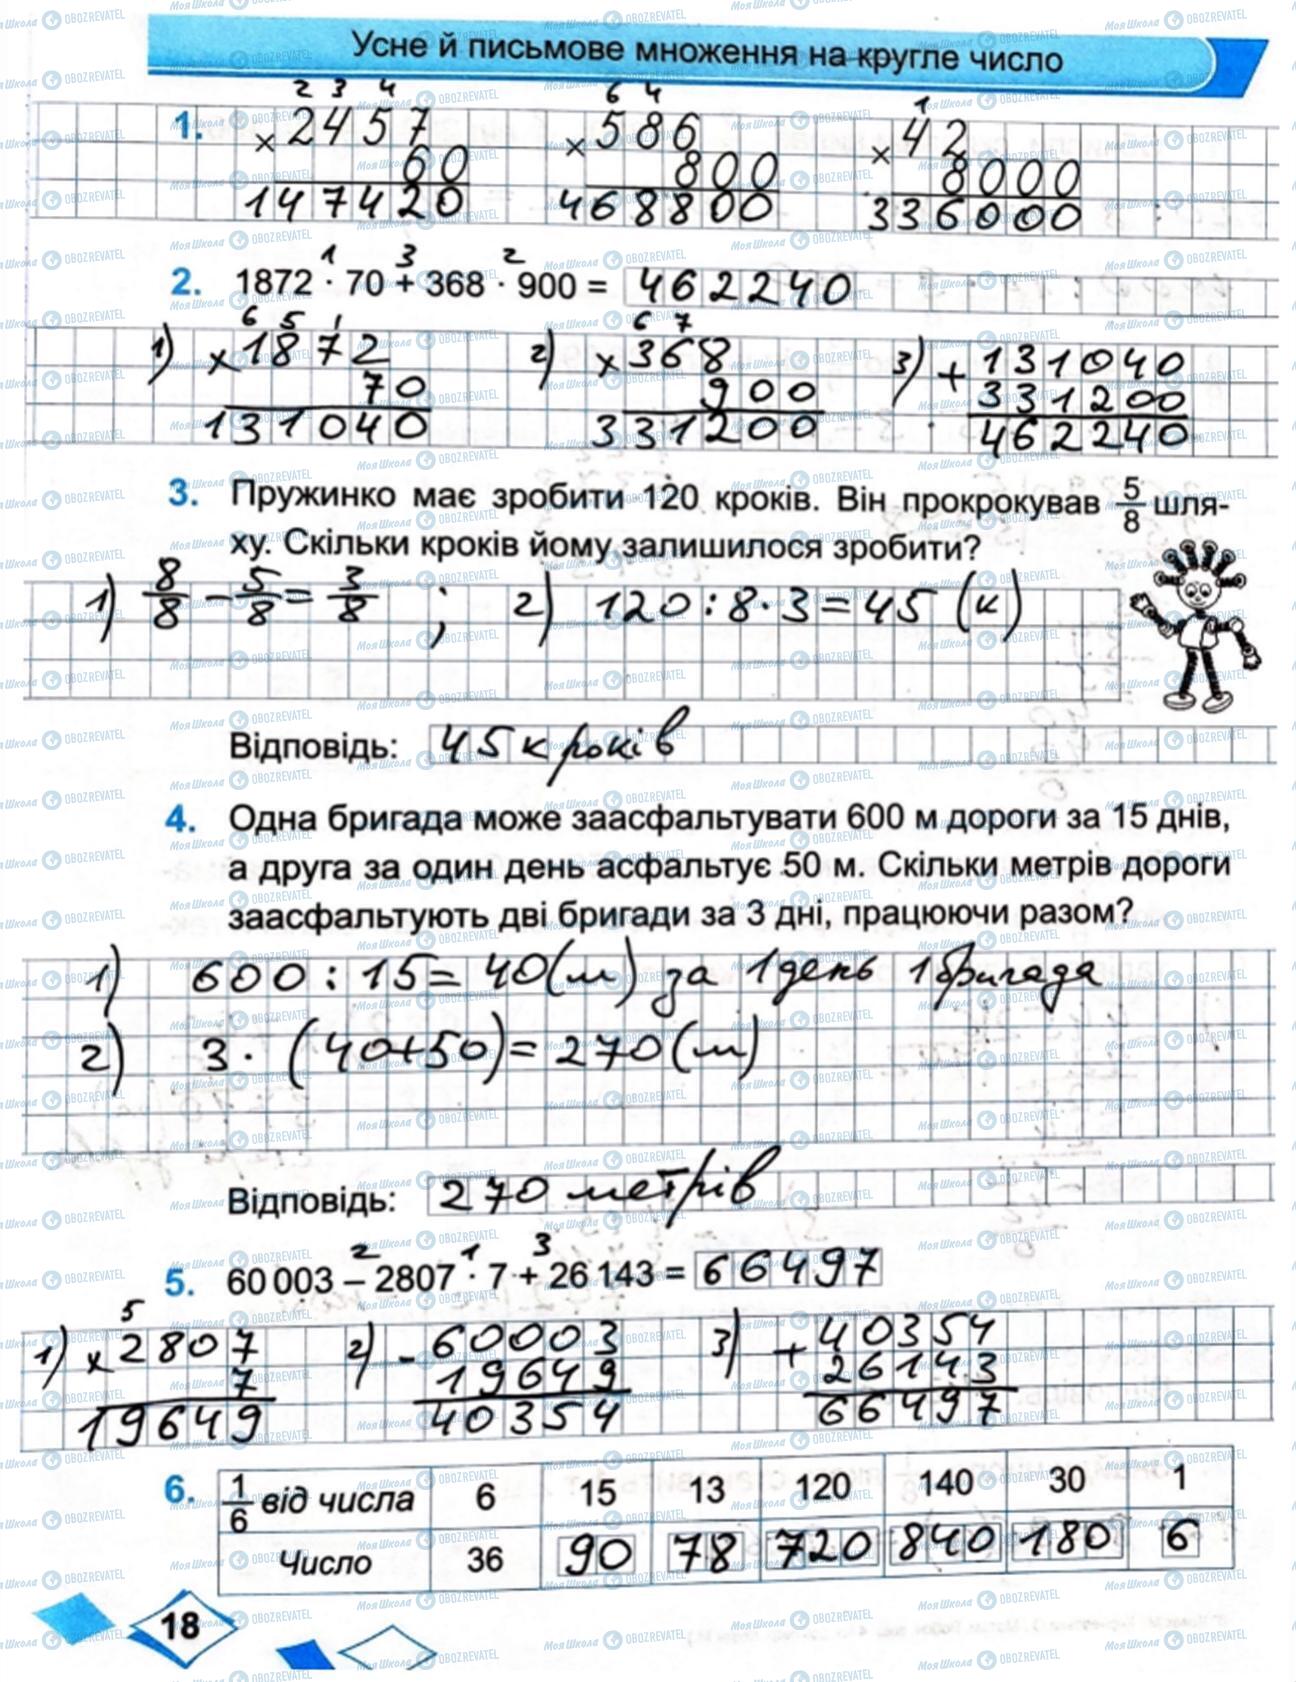 Усне й письмове множення на кругле число
1.
2 3 4
× 2457
60
147420
6 4
× 586
800
468800
1
× 42
8000
336000
2. 1872 · 70 + 368 · 900 = 462240
1 3 2
1)
6 5 1
× 1872
70
131040
2)
6 7
× 368
900
331200
3)
+ 131040
331200
462240
3. Пружинко має зробити 120 кроків. Він прокрокував 5/8 шля-
ху. Скільки кроків йому залишилося зробити?
1) 8/8 − 5/8 = 3/8 ; 2) 120 : 8 · 3 = 45 (к)
Відповідь: 45 кроків
4. Одна бригада може заасфальтувати 600 м дороги за 15 днів,
а друга за один день асфальтує 50 м. Скільки метрів дороги
заасфальтують дві бригади за 3 дні, працюючи разом?
1) 600 : 15 = 40 (м) за 1 день 1 бригада
2) 3 · (40+50) = 270 (м)
Відповідь: 270 метрів
2 1 3
5. 60 003 – 2807 · 7 + 26 143 = 66497
1)
5
× 2807
7
19649
2)
- 60003
19649
40354
3)
+ 40354
26143
66497
6. 1/6 від числа 6 15 13 120 140 30 1
Число 36 90 78 720 840 180 6
18
МояШкола OBOZREVATEL